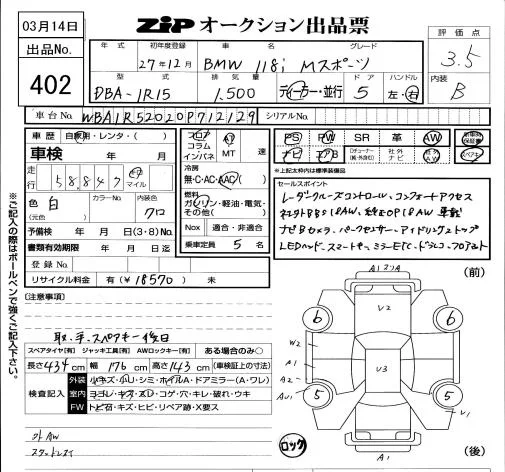 03月14日
ZIP オークション出品票
出品No.
402
年式 初年度登録 車名 グレード
27年12月 BMW 118i Mスポーツ
型式 排気量 ドア ハンドル
DBA-1R15 1,500 ディーラー・並行 5 左・右
評価点
3.5
内装
B
車台No. WBA1R52020P712129 シリアルNo.
車歴 自家用・レンタ・( )
車検 年 月
走行 58,847 km マイル
色 白 (元色)
カラーNo.
内装色 クロ
予備検 年 月 日 (3・8) No.
書類有効期限 年 月 日迄
登録No.
リサイクル料金 有(¥18570) 未
フロア コラム インパネ
AT MT 速
冷房
無・C・AC・AAC( )
燃料
ガソリン・軽油・電気・その他( )
Nox 適合・非適合
乗車定員 5名
PS PW SR 革 AW
ナビ エアB
社外ナビ
社外AW
スペアキー
※上記太枠内は標準装備品
セールスポイント
レーダークルーズコントロール、コンフォートアクセス
ナビBカメラ、パークセンサー、アイドリングストップ
LEDヘッド、スマートキー、ミラーETC、ドラレコ、フロアマット
※ご記入の際はボールペンで強くご記入下さい。
[注意事項]
取・手・スペアキー後日
スペアタイヤ[有] ジャッキ工具[有] AWロックキー[有] ある場合のみ○
長さ434cm 幅176cm 高さ143cm (車検証上の寸法)
検査記入
外装 小キズ・小U・シミ・ホイルA・ドアミラー(A・ワレ)
室内 ヨゴレ・キズ・スレ・コゲ・穴・キレ・破れ・ウキ
FW トビ石・キズ・ヒビ・リペア跡・X要ス
外AW
ロック
(前)
A1
V2
6 6
W2
A1
V3
A2
5 5
V1
A1
(後)